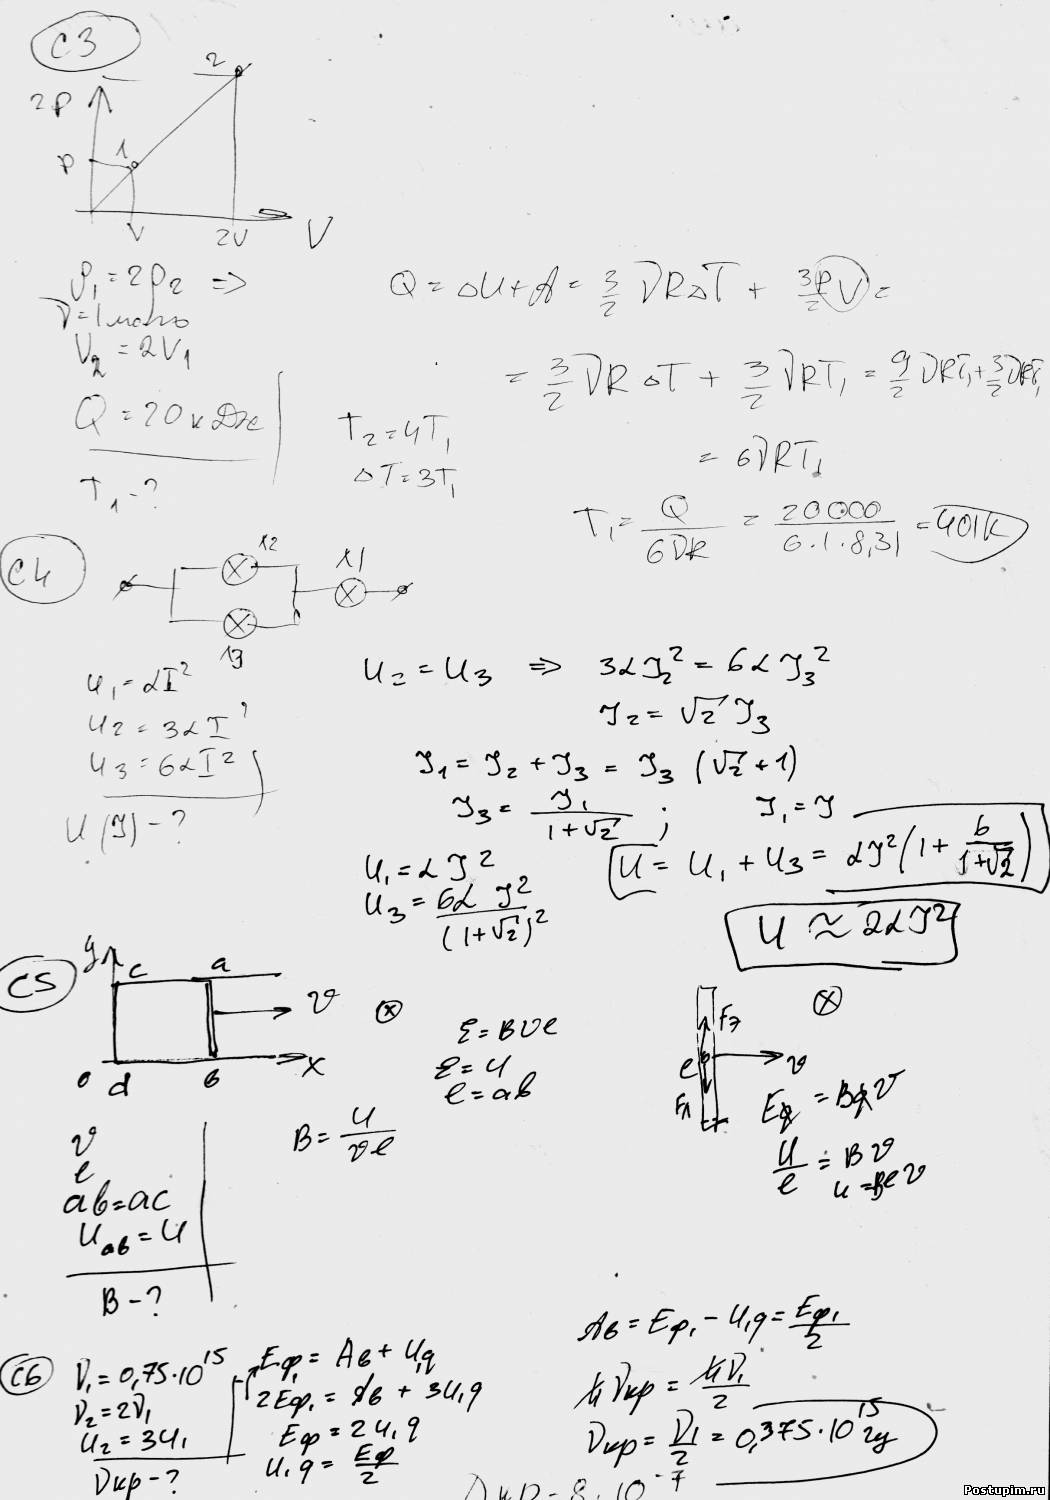 C3
2P
2
P
1
V
2V
V
ρ₁ = 2ρ₂ ⇒
ν = 1 моль
V₂ = 2V₁
Q = 20 кДж
T₁ - ?
T₂ = 4T₁
ΔT = 3T₁
Q = ΔU + A = 3/2 νRΔT + 3/2 PV =
= 3/2 νRΔT + 3/2 νRT₁ = 9/2 νRT₁ + 3/2 νRT₁
= 6νRT₁
T₁ = Q/6νR = 20000/6·1·8,31 = 401K
C4
Л2
Л1
Л3
U₁ = αI²
U₂ = 3αI²
U₃ = 6αI²
U(I) - ?
U₂ = U₃ ⇒ 3αI₂² = 6αI₃²
I₂ = √2 I₃
I₁ = I₂ + I₃ = I₃ (√2 + 1)
I₃ = I₁/1+√2 ; I₁ = I
U₁ = αI²
U₃ = 6αI²/(1+√2)²
U = U₁ + U₃ = αI² (1 + 6/1+√2)
U ≈ 2αI²
C5
y
c
a
v
0
d
b
x
v
l
ab = ac
Uab = U
B - ?
ℰ = Bvl
ℰ = U
l = ab
B = U/vl
Fэ
e
v
Fл
Eq = Bqv
U/l = Bv
U = Blv
C6
ν₁ = 0,75·10¹⁵
ν₂ = 2ν₁
U₂ = 3U₁
νкр - ?
Eф₁ = Aв + U₁q
2Eф₁ = Aв + 3U₁q
Eф = 2U₁q
U₁q = Eф/2
Aв = Eф₁ - U₁q = Eф₁/2
hνкр = hν₁/2
νкр = ν₁/2 = 0,375·10¹⁵ Гц
Postupim.ru